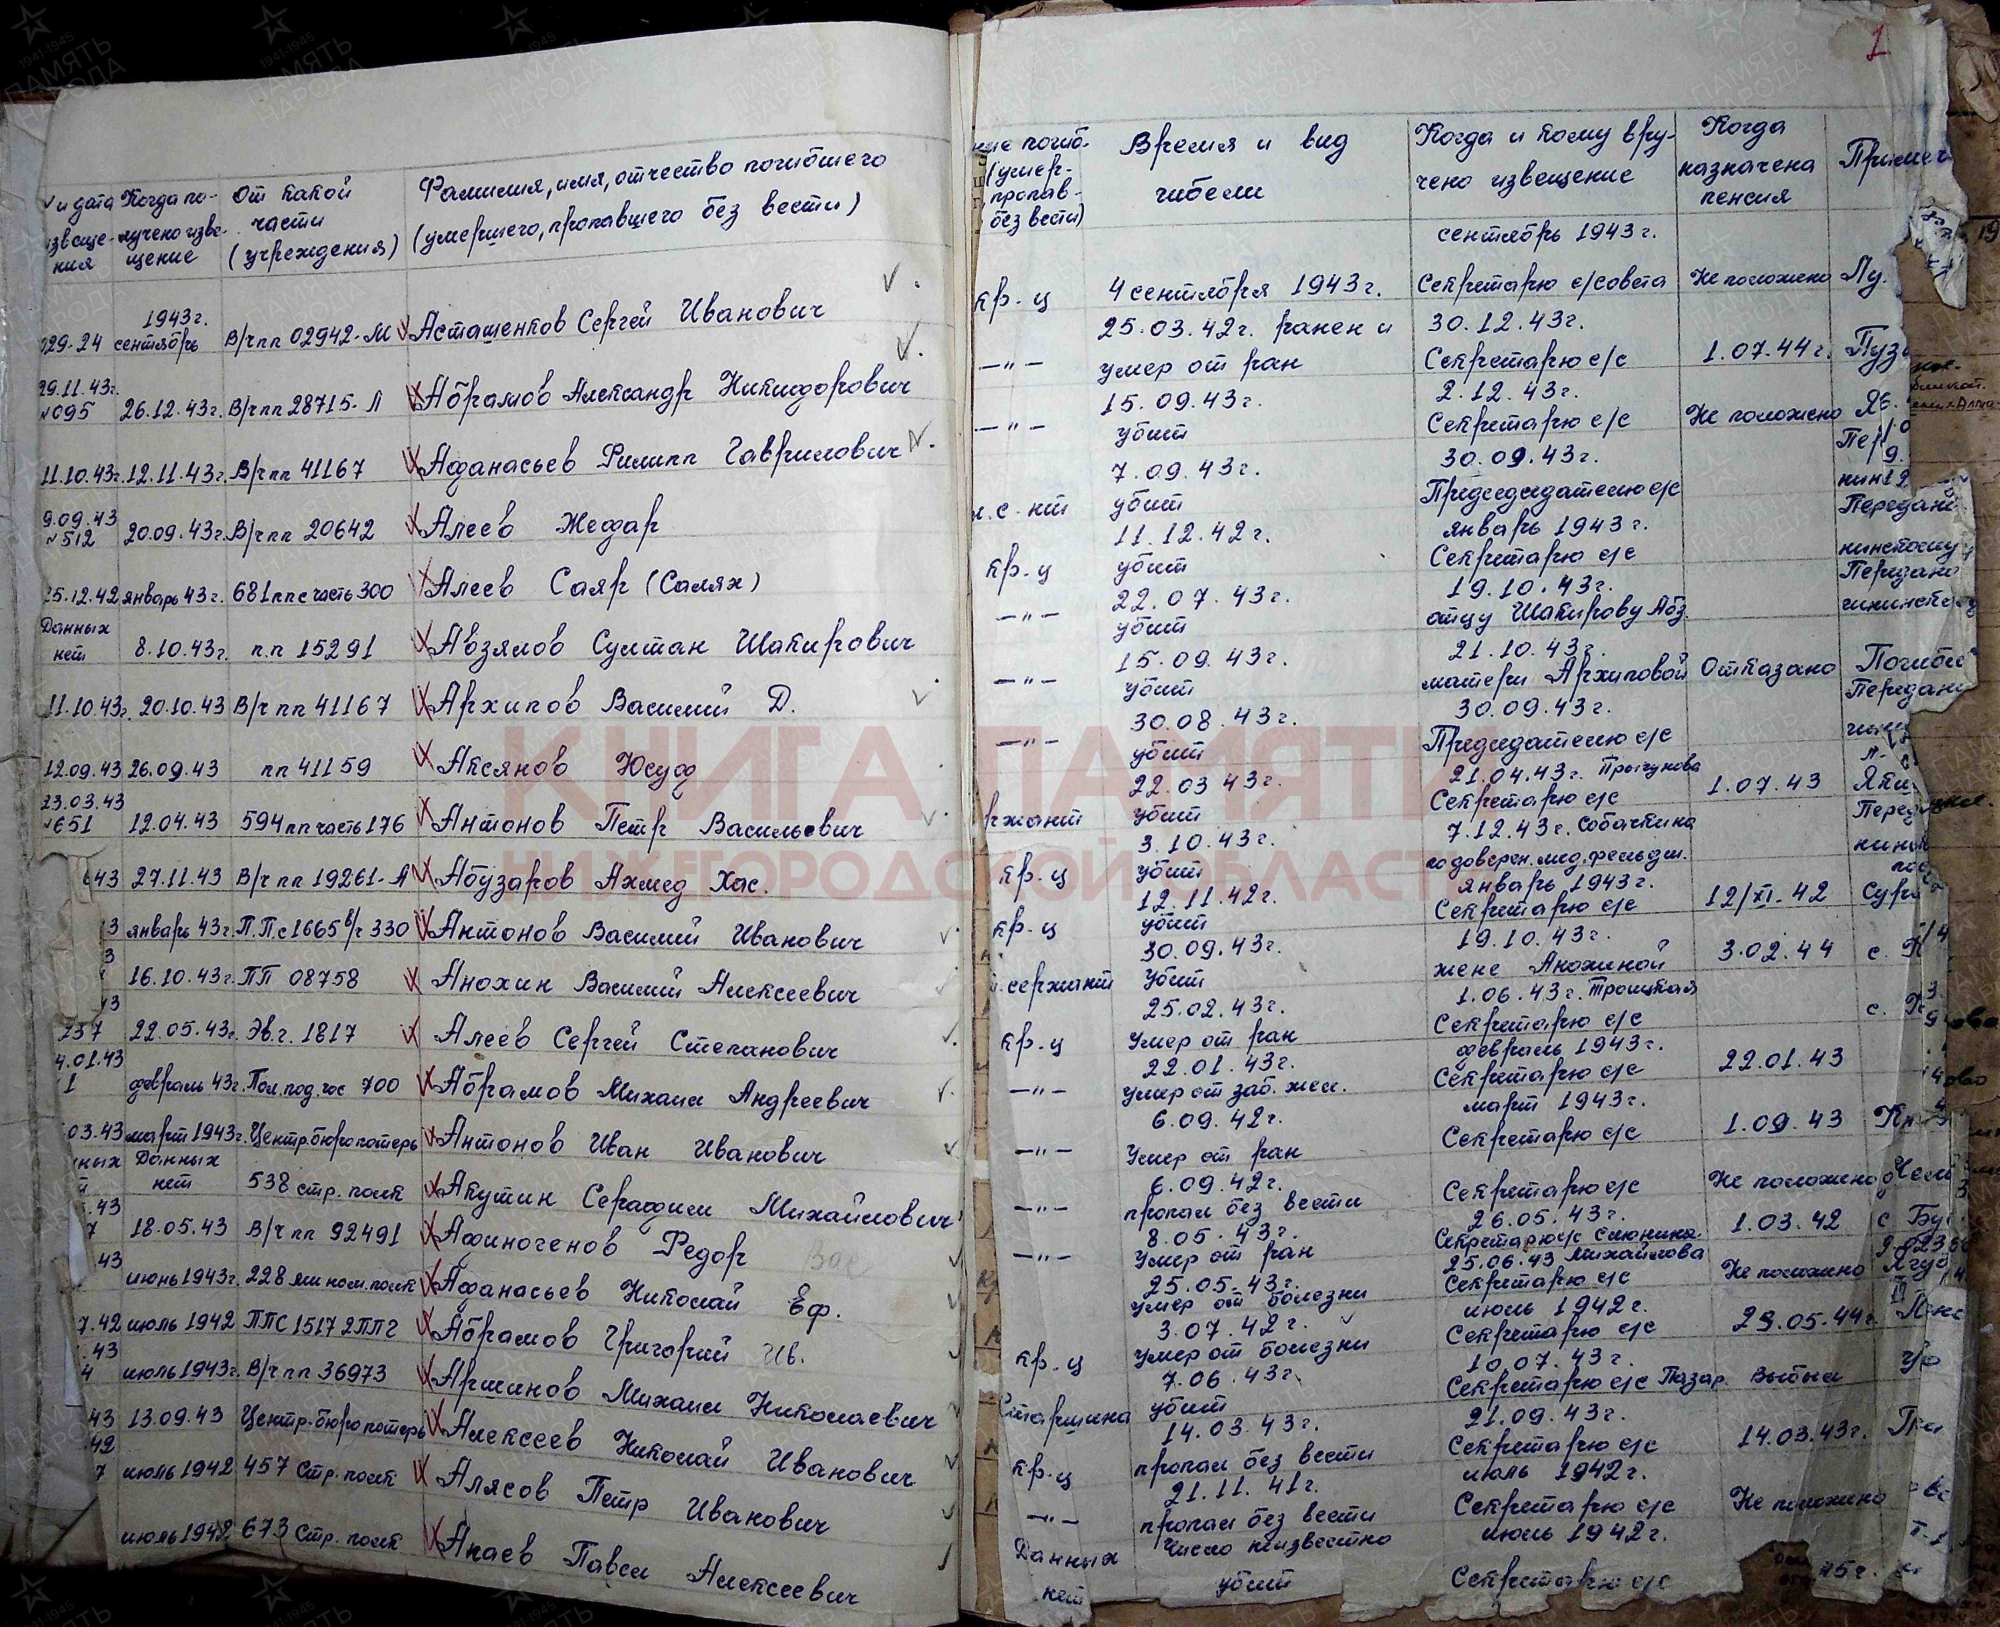 № и дата
извеще-
ния
Когда по-
лучено изве-
щение
От какой
части
(учреждения)
Фамилия, имя, отчество погибшего
(умершего, пропавшего без вести)
1943г.
029-24 сентябрь В/ч пп 02942-М Асташенков Сергей Иванович
29.11.43г.
№095 26.12.43г. В/ч пп 28715-Л Абрамов Александр Никифорович
11.10.43г. 12.11.43г. В/ч пп 41167 Афанасьев Филипп Гаврилович
9.09.43
№512 20.09.43г. В/ч пп 20642 Алеев Жефар
25.12.42 январь 43г. 681 ппс часть 300 Алеев Саяр (Салях)
Данных
нет 8.10.43г. пп 15291 Авзялов Султан Шакирович
11.10.43г. 20.10.43 В/ч пп 41167 Архипов Василий Д.
12.09.43 26.09.43 пп 41159 Аксянов Юсуф
23.03.43
№651 12.04.43 594 пп часть 176 Антонов Петр Васильевич
43 27.11.43 В/ч пп 19261-А Абузаров Ахмед Хас.
3 январь 43г. П.П.с 1665 в/ч 330 Антонов Василий Иванович
3
16.10.43г. ПП 08758 Анохин Василий Алексеевич
13
237 22.05.43г. Эв.г. 1817 Алеев Сергей Степанович
4.01.43
1 февраль 43г. Пол.под.гос 700 Абрамов Михаил Андреевич
03.43 март 1943г. Центр.бюро потерь Антонов Иван Иванович
нных Данных
нет 538 стр. полк Акутин Серафим Михайлович
.43
7 18.05.43 В/ч пп 92491 Афиногенов Федор
43
июнь 1943г. 228 мином.полк Афанасьев Николай Еф.
7.42 июль 1942 ППС 1517 2ППГ Абрамов Григорий Ив.
.43
4 июль 1943г. В/ч пп 36973 Аршинов Михаил Николаевич
43 13.09.43 Центр.бюро потерь Алексеев Николай Иванович
42
7 июль 1942 457 Стр. полк Алясов Петр Иванович
июль 1942 673 Стр. полк Апаев Павел Алексеевич
1
ние погиб.
(умер-
пропав-
без вести)
Время и вид
гибели
Когда и кому вру-
чено извещение
Когда
назначена
пенсия
Примеч
сентябрь 1943г.
кр-ц 4 сентября 1943г. Секретарю с/совета Не положено Пу.
25.03.42г. ранен и 30.12.43г.
—"— умер от ран Секретарю с/с 1.07.44г. Пуз
15.09.43г. 2.12.43г.
—"— убит Секретарю с/с Не положено Яз.
7.09.43г. 30.09.43г.
с-нт убит Председателю с/с
11.12.42г. январь 1943г. Передан
кр-ц убит Секретарю с/с нинскому
22.07.43г. 19.10.43г. Передано
—"— убит отцу Шакирову Абз.
15.09.43г. 21.10.43г.
—"— убит матери Архиповой Отказано Погиб
30.08.43г. 30.09.43г. Передан
—"— убит Председателю с/с
22.03.43г. 21.04.43г. Прогунова
ржант убит Секретарю с/с 1.07.43
3.10.43г. 7.12.43г. Собачкина
кр-ц убит по доверен. мед. фельдш.
12.11.42г. январь 1943г.
кр-ц убит Секретарю с/с 12/XI-42
30.09.43г. 19.10.43г.
сержант убит жене Анохиной 3.02.44
25.02.43г. 1.06.43г. Троицкая
кр-ц Умер от ран Секретарю с/с
22.01.43г. февраль 1943г.
—"— умер от заб. жел. Секретарю с/с 22.01.43
6.09.42г. март 1943г.
—"— Умер от ран Секретарю с/с 1.09.43
6.09.42г.
—"— пропал без вести Секретарю с/с Не положено
8.05.43г. 26.05.43г.
—"— Умер от ран Секретарю с/с 1.03.42
25.05.43г. 25.06.43 Михайлова
умер от болезни Секретарю с/с Не положено
3.07.42г. июль 1942г.
кр-ц Умер от болезни Секретарю с/с 29.05.44г.
7.06.43г. 10.07.43г.
Старшина убит Секретарю с/с Назар. Выбыл
14.03.43г. 21.09.43г.
кр-ц пропал без вести Секретарю с/с 14.03.43г.
21.11.41г. июль 1942г.
—"— пропал без вести Секретарю с/с Не положено
Данных Число неизвестно июль 1942г.
нет убит Секретарю с/с
КНИГА ПАМЯТИ
НИЖЕГОРОДСКОЙ ОБЛАСТИ
1941-1945
ПАМЯТЬ
НАРОДА